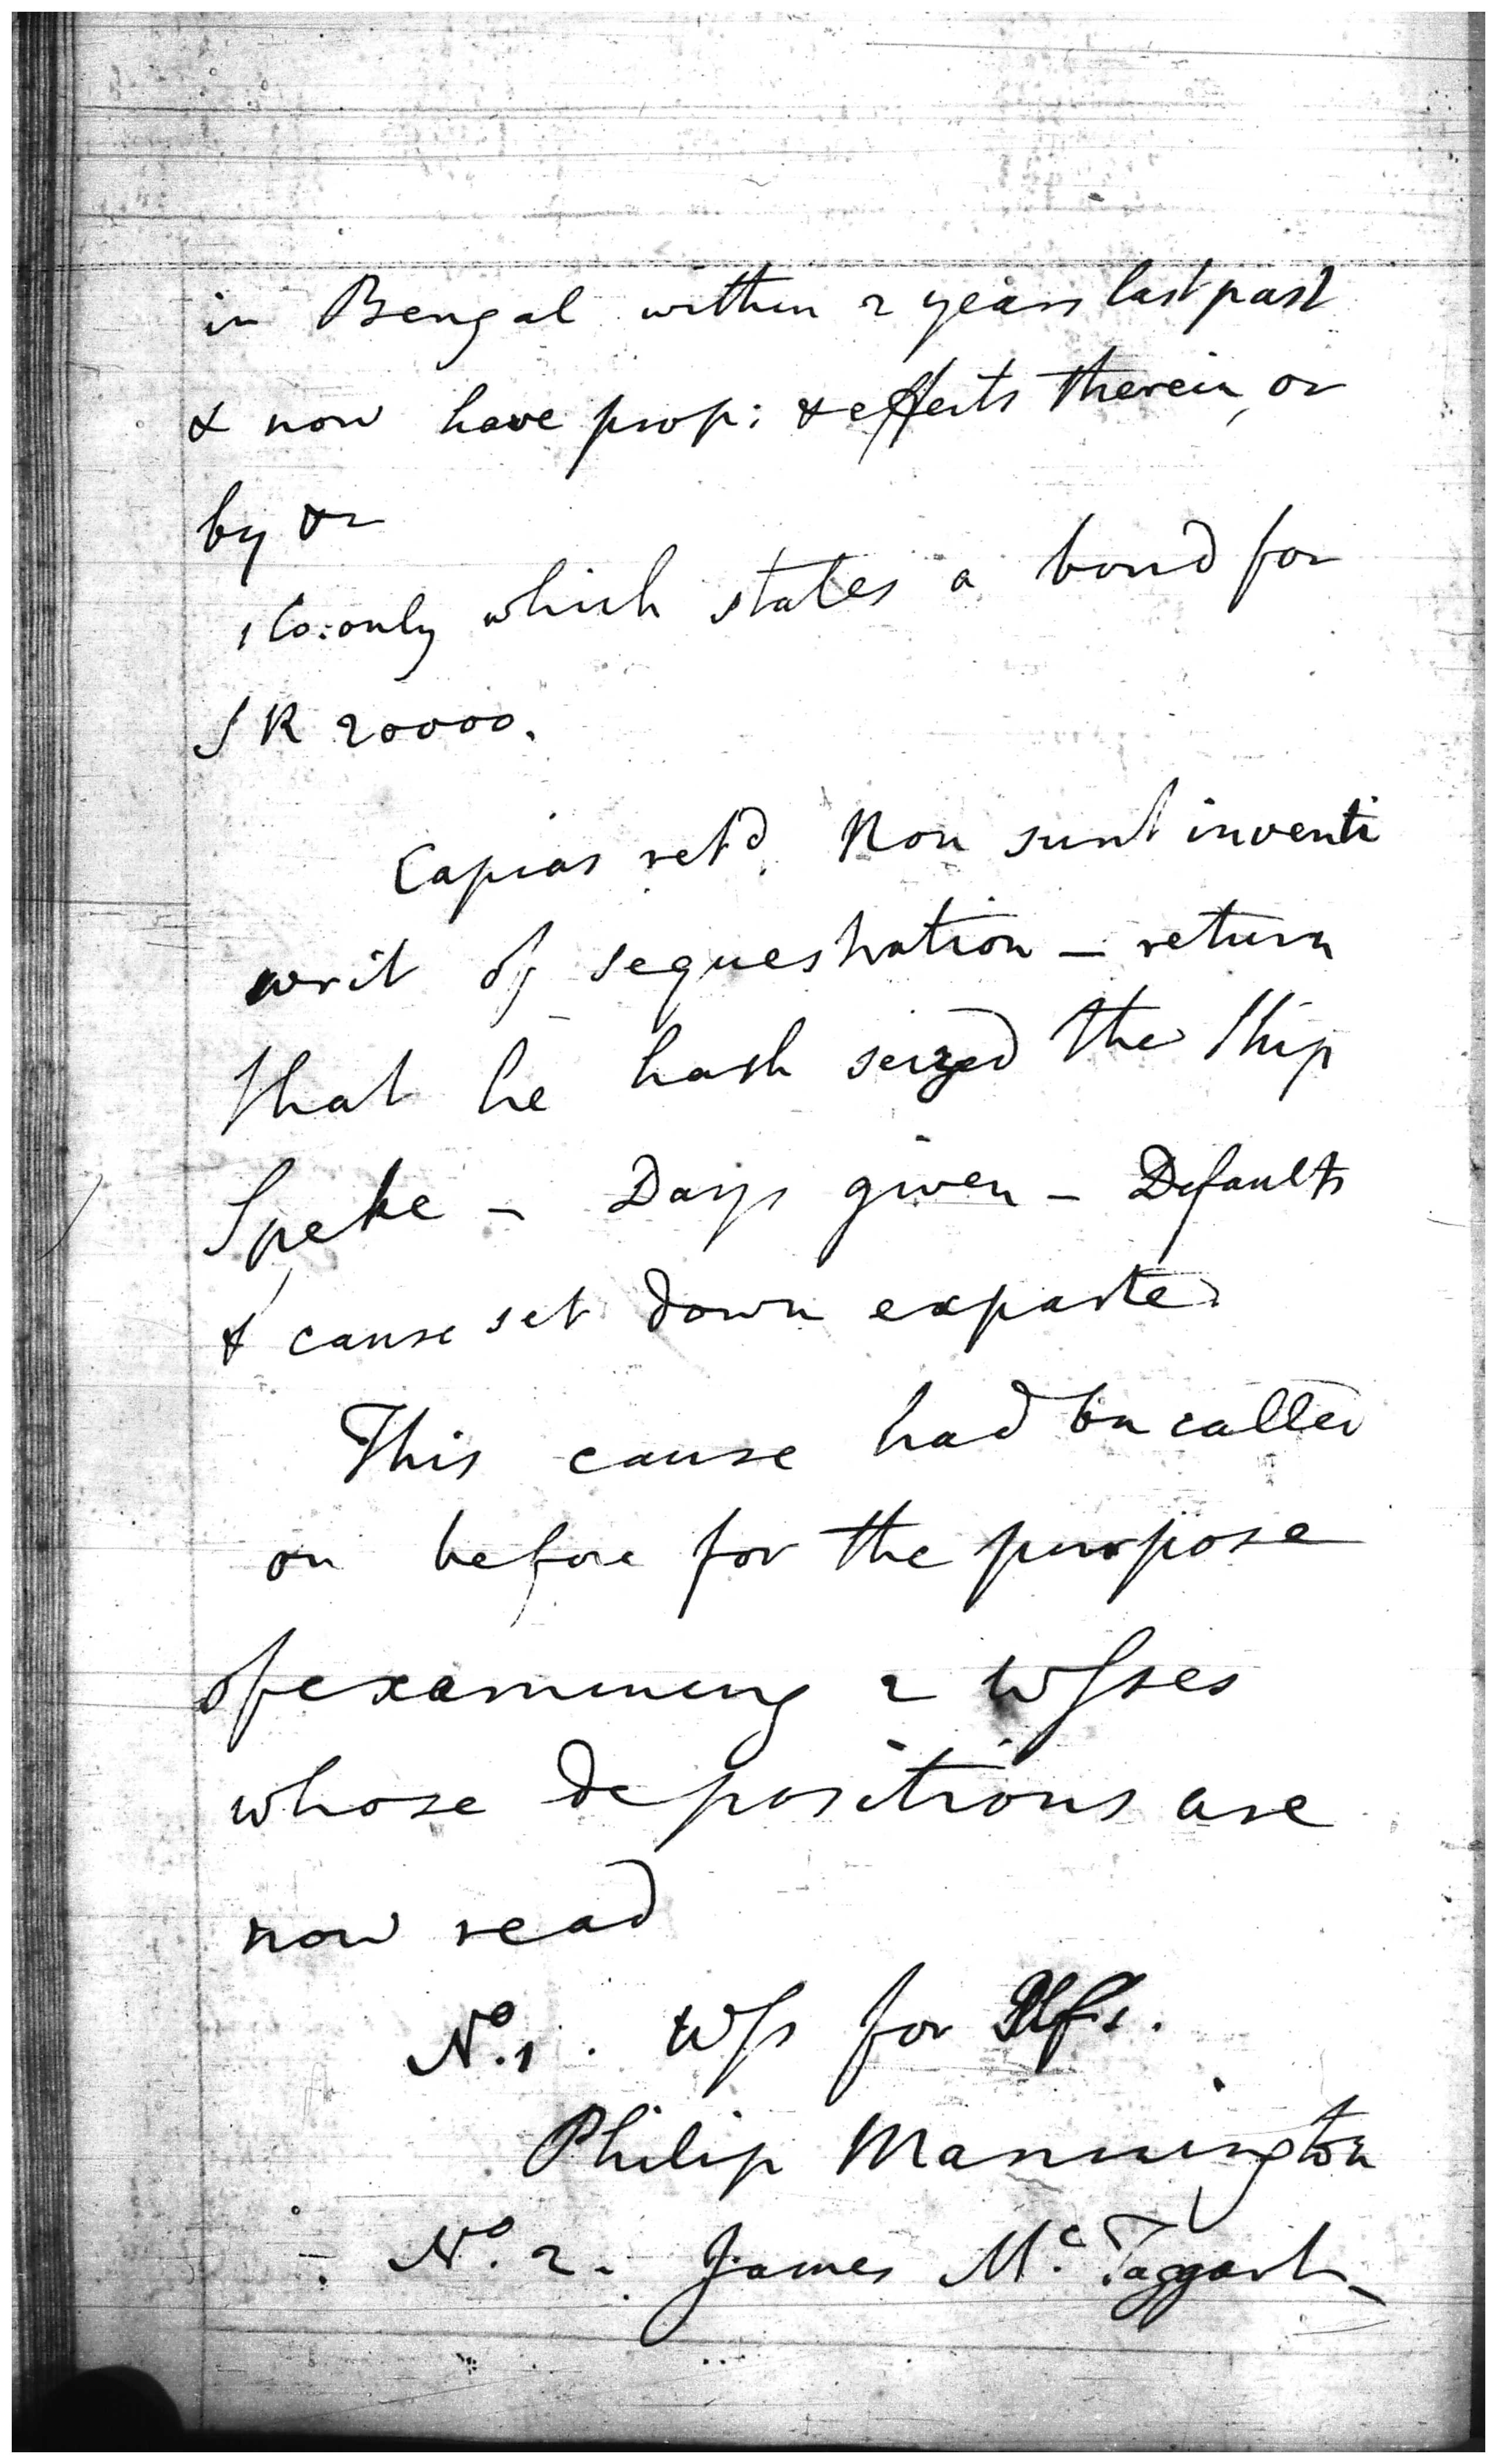 in Bengal within 2 years last past
& now have prop: & effects therein, or
by &c
1 Co: only which states a bond for
SR 20000.
Capias retd. Non sunt inventi
writ of sequestration – return
that he hath seized the Ship
Speke – Days given – Defaults
& cause set down exparte.
This cause had bn called
on before for the purpose
of examining 2 Wsses
whose depositions are
now read
No. 1. Wss for Plfs.
Philip Mannington
No. 2. James Mc. Taggart